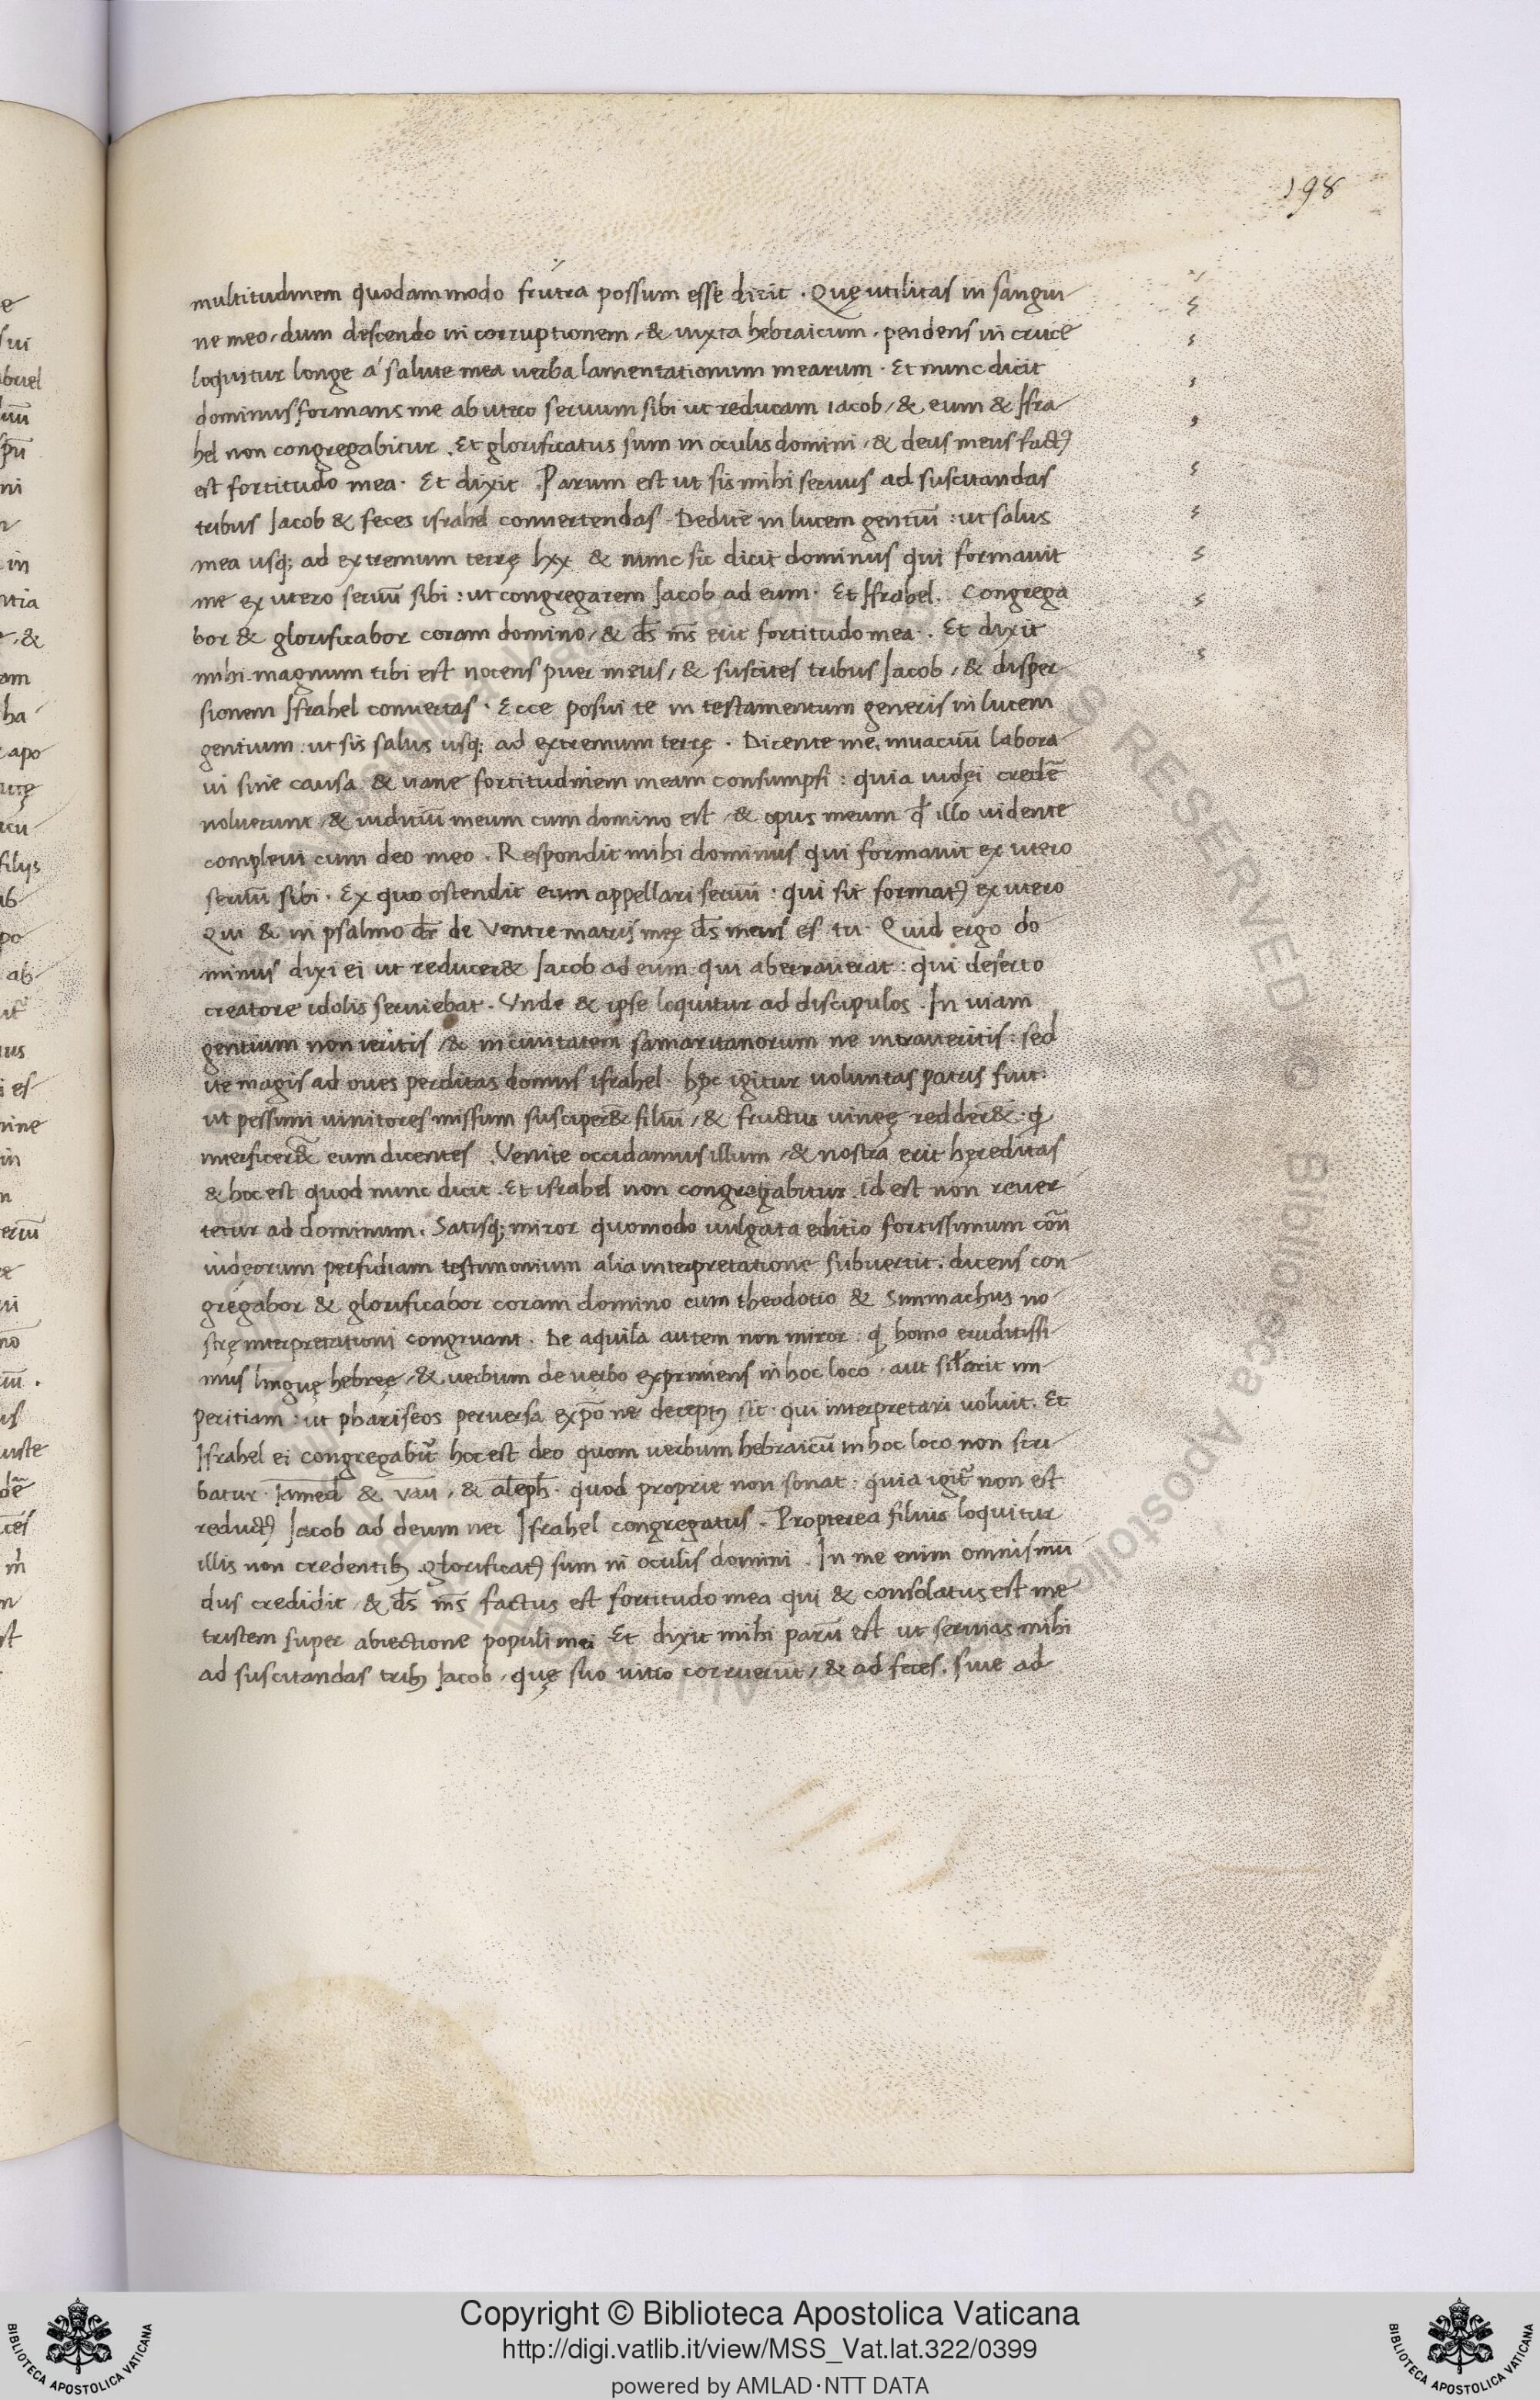 198
multitudinem quodammodo frustra possum esse dicit . Quę utilitas in sangui
ne meo / dum descendo in corruptionem / & iuxta hebraicum . pendens in cruce
loquitur longe a salute mea verba lamentationum mearum . Et nunc dicit
dominus formans me ab utero seruum sibi ut reducam iacob / & eum & Isra
hel non congregabitur . Et glorificatus sum in oculis domini / & deus meus factꝰ
est fortitudo mea . Et dixit . Parum est ut sis mihi seruus ad suscitandas
tribus Jacob & feces israhel conuertendas . Dedi te in lucem gentiū : ut salus
mea usq; ad extremum terrę lxx & nunc sic dicit dominus qui formauit
me ex utero seruū sibi : ut congregarem Jacob ad eum . Et Israhel . Congrega
bor & glorificabor coram domino / & ds̄ ms̄ erit fortitudo mea . Et dixit
mihi magnum tibi est uocens puer meus / & suscites tribus Jacob / & disper
sionem Israhel conuertas . Ecce posui te in testamentum generis in lucem
gentium : ut sis salus usq; ad extremum terrę . Dicente me . in uacuū labora
ui sine causa & uane fortitudinem meam consumpsi : quia iudęi credē
noluerunt / & iudiciū meum cum domino est / & opus meum qd̄ illo uidente
compleui cum deo meo . Respondit mihi dominus qui formauit ex utero
seruū sibi . Ex quo ostendit eum appellari seruū . qui sit formatꝰ ex utero
Qui & in psalmo dr̄ de Ventre matris meę ds̄ meus es tu . Quid ergo do
minus dixi ei ut reducer& Jacob ad eum qui aberrauerat : qui deserto
creatore idolis seruiebat . Vnde & ipse loquitur ad discipulos . In uiam
gentium non ieritis / & in ciuitatem samaritanorum ne intraueritis : sed
ite magis ad oues perditas domus israhel . hęc igitur uoluntas patris fuit :
ut pessimi uinitores missum susciper&̄ filiū / & fructus uineę redder&̄ : q
interficer&̄ eum dicentes . Venite occidamus illum / & nostra erit hęreditas
& hoc est quod nunc dicit . Et israhel non congregabitur . id est non reuer
tetur ad dominum . Satisq; miror quomodo uulgata editio fortissimum cōn
iudęorum perfidiam testimonium alia interpretatione subuertit . dicens con
gregabor & glorificabor coram domino cum theodotio & Simmachus no
strę interpretationi congruant . De aquila autem non miror : q homo eruditissi
mus linguę hebręę / & uerbum de uerbo exprimens in hoc loco . aut sił̄arit im
peritiam : ut phariseos peruersa expōne deceptꝰ sit . qui interpretari uoluit . Et
Israhel ei congregabit̄ hoc est deo quom uerbum hebraicū in hoc loco non scri
batur . lamed & vau , & aleph . quod proprie non sonat : quia igit̄ non est
reductꝰ Jacob ad deum nec Israhel congregatus . Propterea filius loquitur
illis non credentibꝫ . glorificatꝰ sum in oculis domini . In me enim omnis mū
dus credidit / & ds̄ ms̄ factus est fortitudo mea qui & consolatus est me
tristem super abiectione populi mei Et dixit mihi parū est ut seruias mihi
ad suscitandas tribꝫ Jacob , quę suo uitio corruerūt / & ad feces . siue ad
Copyright © Biblioteca Apostolica Vaticana
http://digi.vatlib.it/view/MSS_Vat.lat.322/0399
powered by AMLAD·NTT DATA